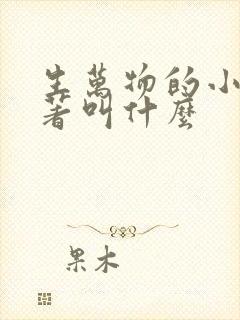 生萬物的小
著叫什麼
果木